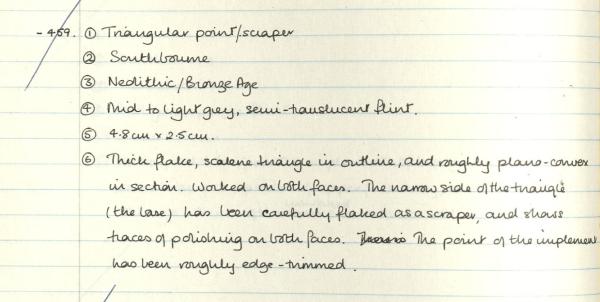 - 459. ① Triangular point/scraper
② Southbourne
③ Neolithic/Bronze Age
④ Mid to light grey, semi-translucent flint.
⑤ 4.8cm x 2.5cm.
⑥ Thick flake, scalene triangle in outline, and roughly plano-convex
in section. Worked on both faces. The narrow side of the triangle
(the base) has been carefully flaked as a scraper, and shows
traces of polishing on both faces. The point of the implement
has been roughly edge-trimmed.